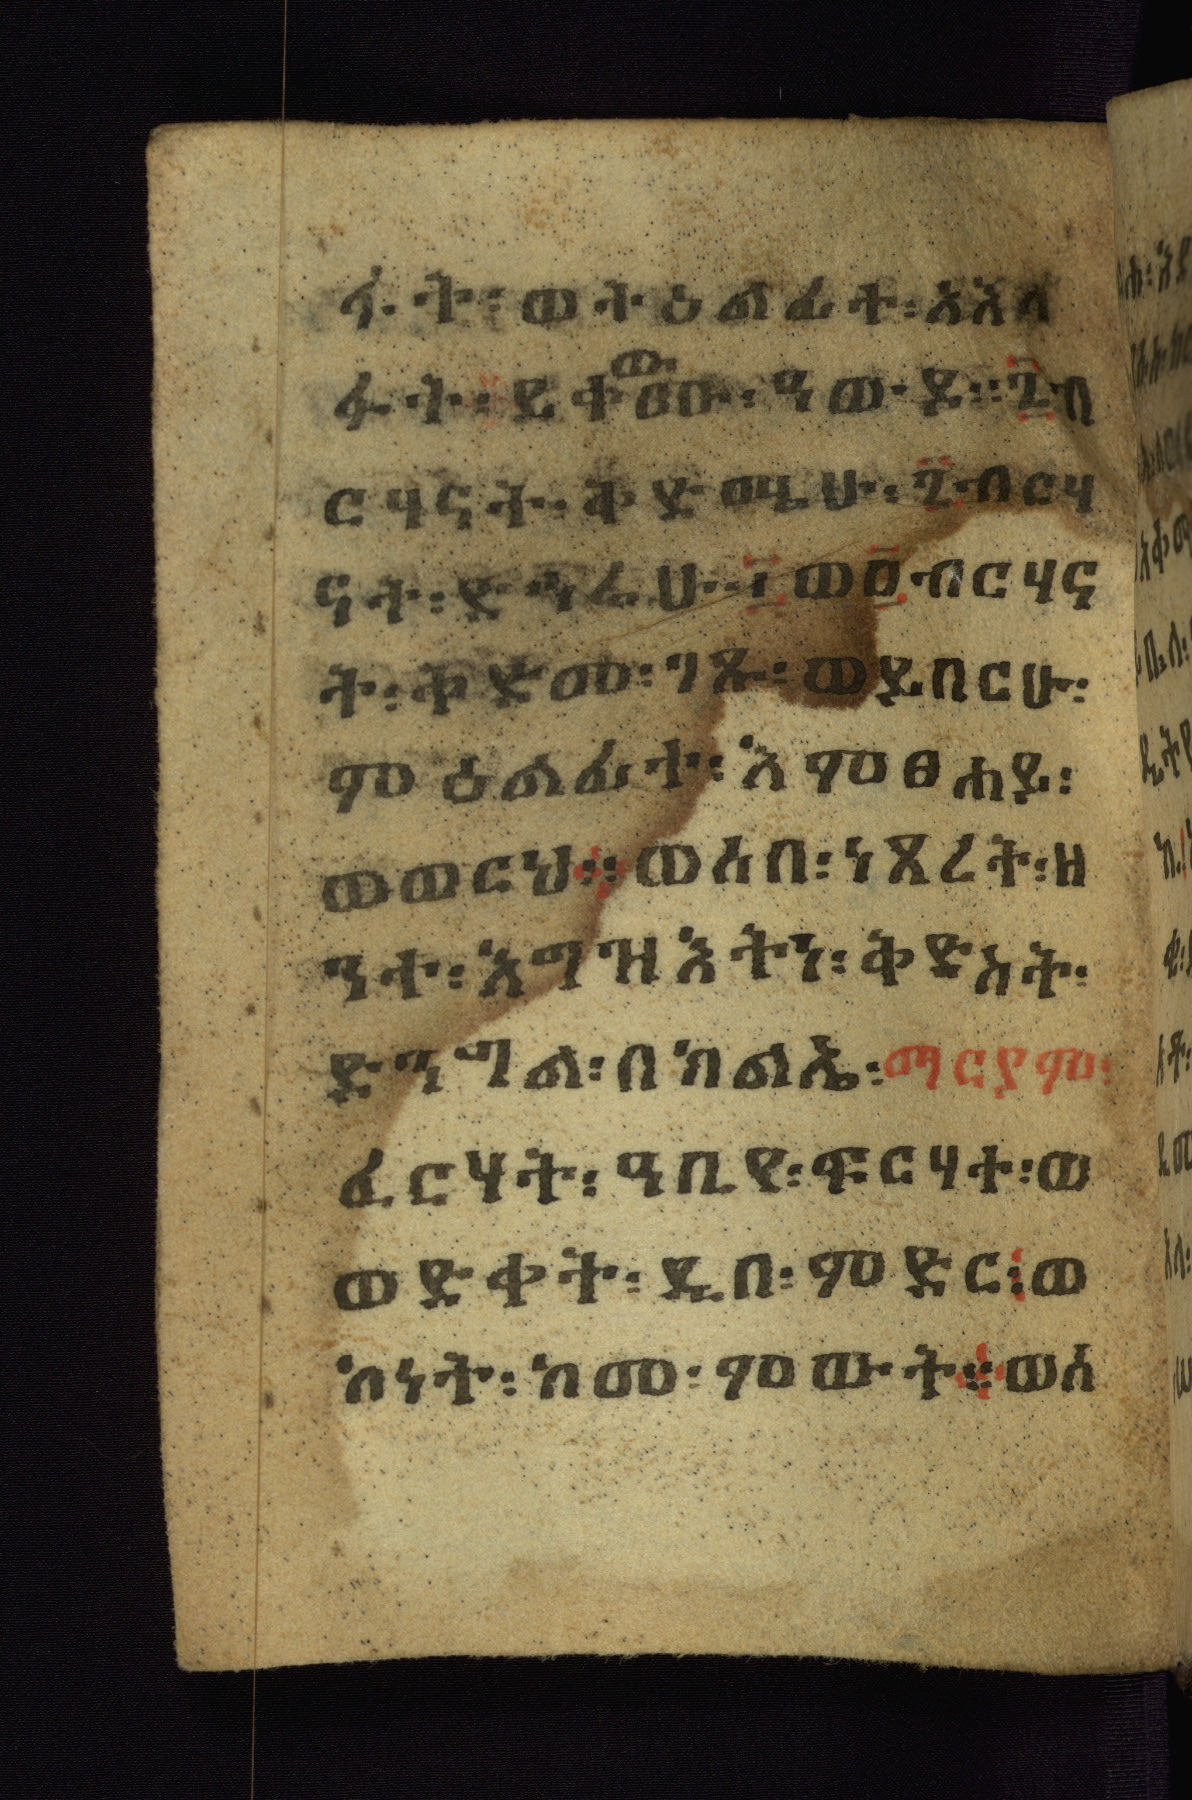 ፋት፡ወትዕልፊት፡አእላ
ፉት፡ይቀውሙ፡ዓውዶ።፫ብ
ርሃናት፡ቅድሜሁ፡፫ብርሃ
ናት፡ድኅሬሁ፡፲ወ፬ብርሃና
ት፡ቅድመ፡ገጹ፡ወይበርሁ፡
ምዕልፊተ፡እምፀሐይ፡
ወወርኅ።ወሶበ፡ነጸረት፡ዘ
ንተ፡እግዝእትነ፡ቅድስት፡
ድንግል፡በክልኤ፡ማርያም፡
ፈርሃት፡ዓቢየ፡ፍርሃተ፡ወ
ወድቀት፡ዲበ፡ምድር፡ወ
ኮነት፡ከመ፡ምውት።ወሶ